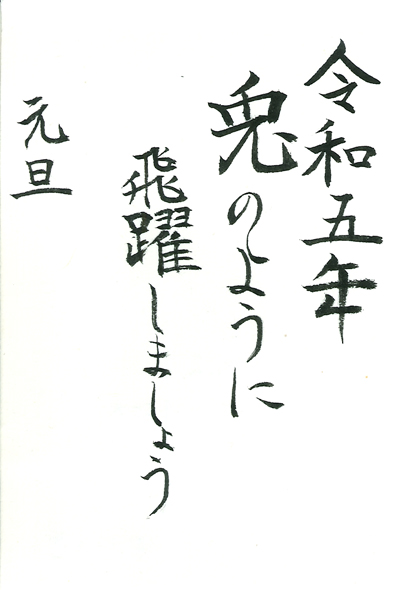 令和五年
兎のように
飛躍しましょう
元旦